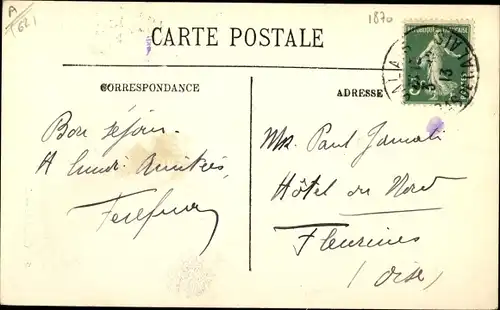 A
(62)
1870
CARTE POSTALE
CORRESPONDANCE
ADRESSE
Bon séjour.
A lundi. Amitiés,
Mr Paul
Hôtel du Nord
Fleurines
(Oise)